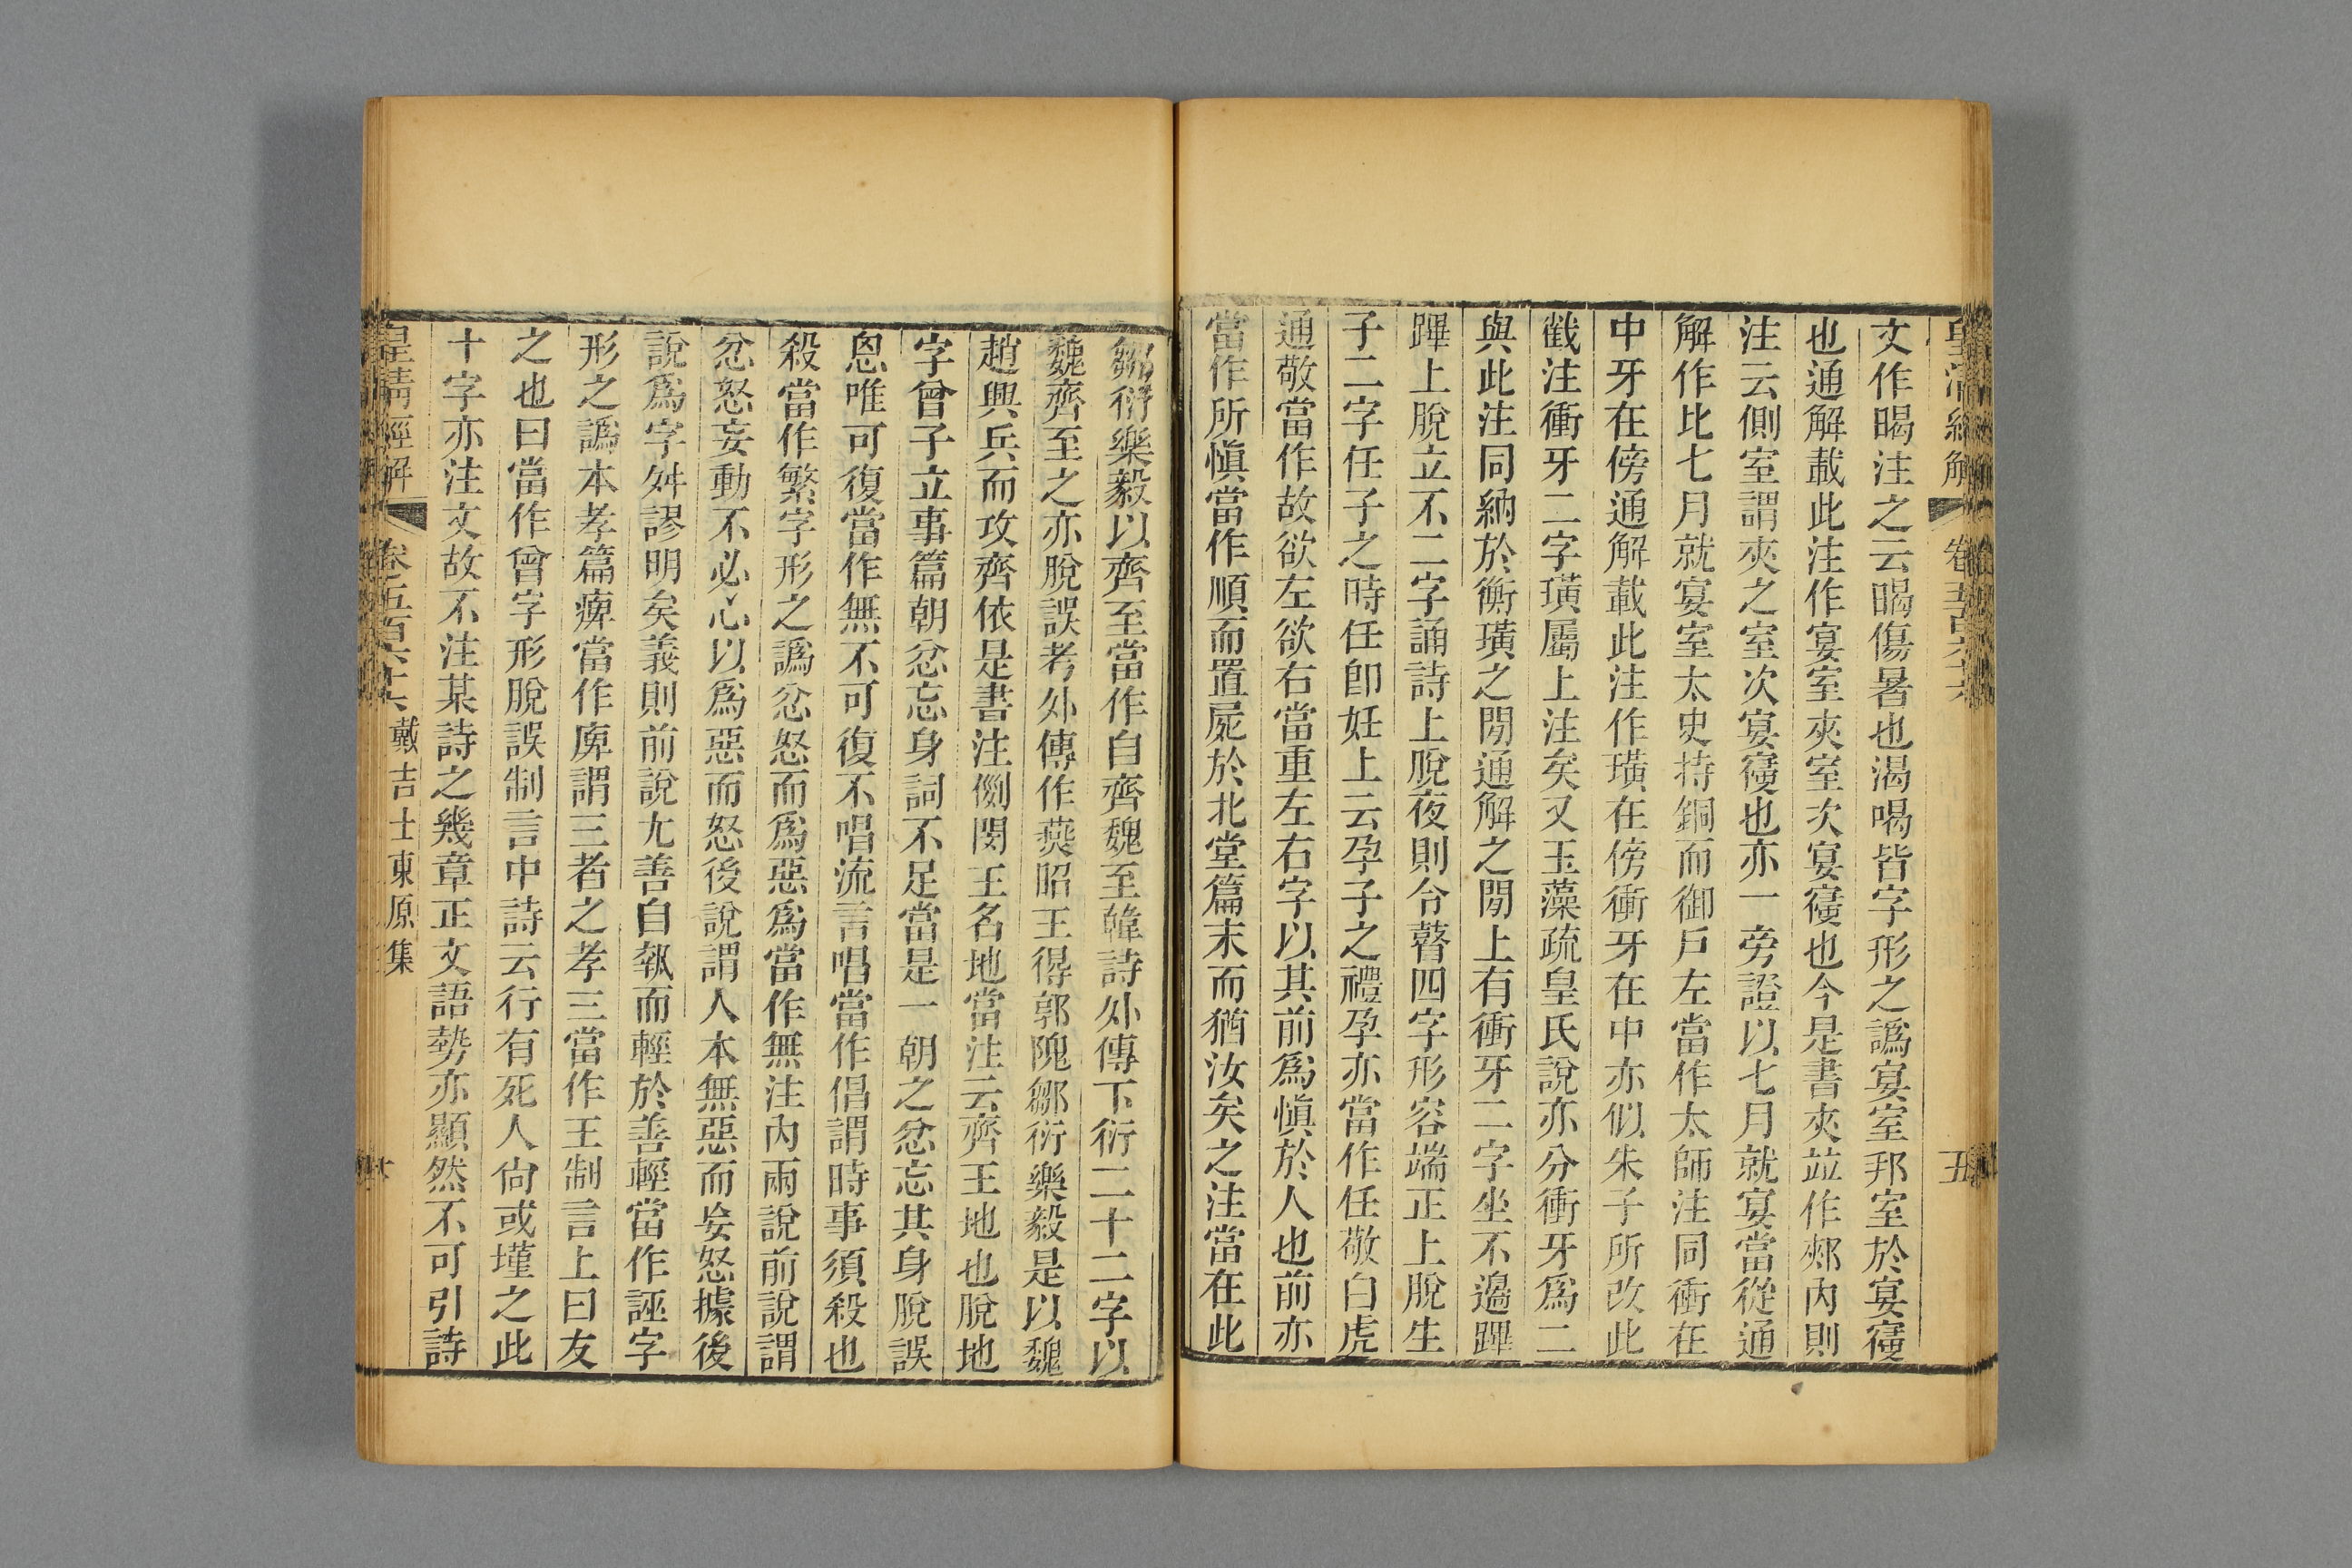 皇清經解 卷五百六十六 五
文作暍注之云暍傷暑也渴喝皆字形之譌宴室郉室於宴寢
也通解載此注作宴室夾室次宴寢也今是書夾竝作郟內則
注云側室謂夾之室次宴寢也亦一旁證以七月就宴當從通
解作比七月就宴室太史持銅而御戶左當作太師注同衝在
中牙在傍通解載此注作璜在傍衝牙在中亦似朱子所改此
戳注衝牙二字璜屬上注矣又玉藻疏皇氏說亦分衝牙爲二
與此注同納於衡璜之閒通解之閒上有衝牙二字坐不邉蹕
蹕上脫立不二字誦詩上脫夜則令瞽四字形容端正上脫生
子二字任子之時任卽妊上云孕子之禮孕亦當作任敬白虎
通敬當作故欲左欲右當重左右字以其前爲愼於人也前亦
當作所愼當作順而置屍於北堂篇末而猶汝矣之注當在此
鄒衍樂毅以齊至當作自齊魏至韓詩外傳下衍二十二字以
魏齊至之亦脫誤考外傳作燕昭王得郭隗鄒衍樂毅是以魏
趙興兵而攻齊依是書注例閔王名地當注云齊王地也脫地
字曾子立事篇朝忿忘身詞不足當是一朝之忿忘其身脫誤
恩唯可復當作無不可復不唱流言唱當作倡謂時事須殺也
殺當作繁字形之譌忿怒而爲惡爲當作無注內兩說前說謂
忿怒妄動不必心以爲惡而怒後說謂人本無惡而妄怒據後
說爲字舛謬明矣義則前說尢善自執而輕於善輕當作誣字
形之譌本孝篇痺當作庳謂三者之孝三當作王制言上曰友
之也曰當作曾字形脫誤制言中詩云行有死人尙或墐之此
十字亦注文故不注某詩之幾章正文語勢亦顯然不可引詩
皇淸經解 卷五百六十六 戴吉士東原集 六